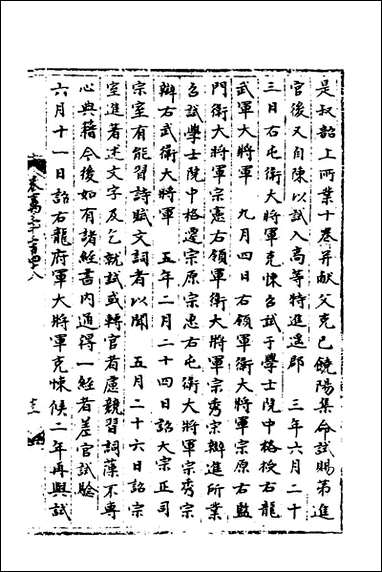 是叔韶上所業十卷并献父克己饒陽集命試賜第進
官後又自陳以試入高等特進遥郡　三年六月二十
三日右屯衛大將軍克悚召試于學士院中格授右龍
武軍大將軍　九月四日右領軍衛大將軍宗原右監
門衛大將軍宗憲右領軍衛大將軍宗秀宗辦進所業
召試學士院中格遷宗原宗忠右屯衛大將軍宗秀宗
辦右武衛大將軍　五年二月二十四日詔大宗正司
宗室有能習詩賦文詞者以聞　五月二十六日詔宗
室進著述文字及乞就試或轉官者慮競習詞藻不專
心典籍今後如有諸經書内通得一經者差官試驗
六月十一日詔右龍府軍大將軍克悚候二年再與試
卷一萬二千七百四十八
十三